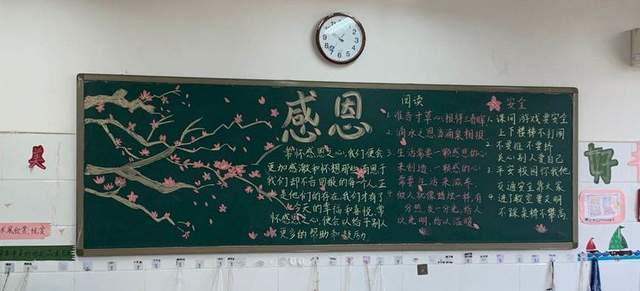 美
感恩
常怀感恩之心,我们便会
更加感激和怀想那些有恩于
我们却不言回报的每一个人。正
是他们的存在,我们才有了
今天的幸福和喜悦。常
怀感恩之心,便会以给予别人
更多的帮助和鼓励
阅读
1. 谁言寸草心,报得三春晖
2. 滴水之恩当涌泉相报
3. 生活需要一颗感恩的心
来创造,一颗感恩的心
需要生活来滋养
4. 做人就像蜡烛一样,有
一分热发一分光,给人
以光明,给人以温暖
安全
1. 课间游戏要安全
上下楼梯不打闹
2. 不要推不要挤
关心别人爱自己
3. 平安校园你我他
交通安全靠大家
进了教室要文明
不踩桌椅不攀高
好